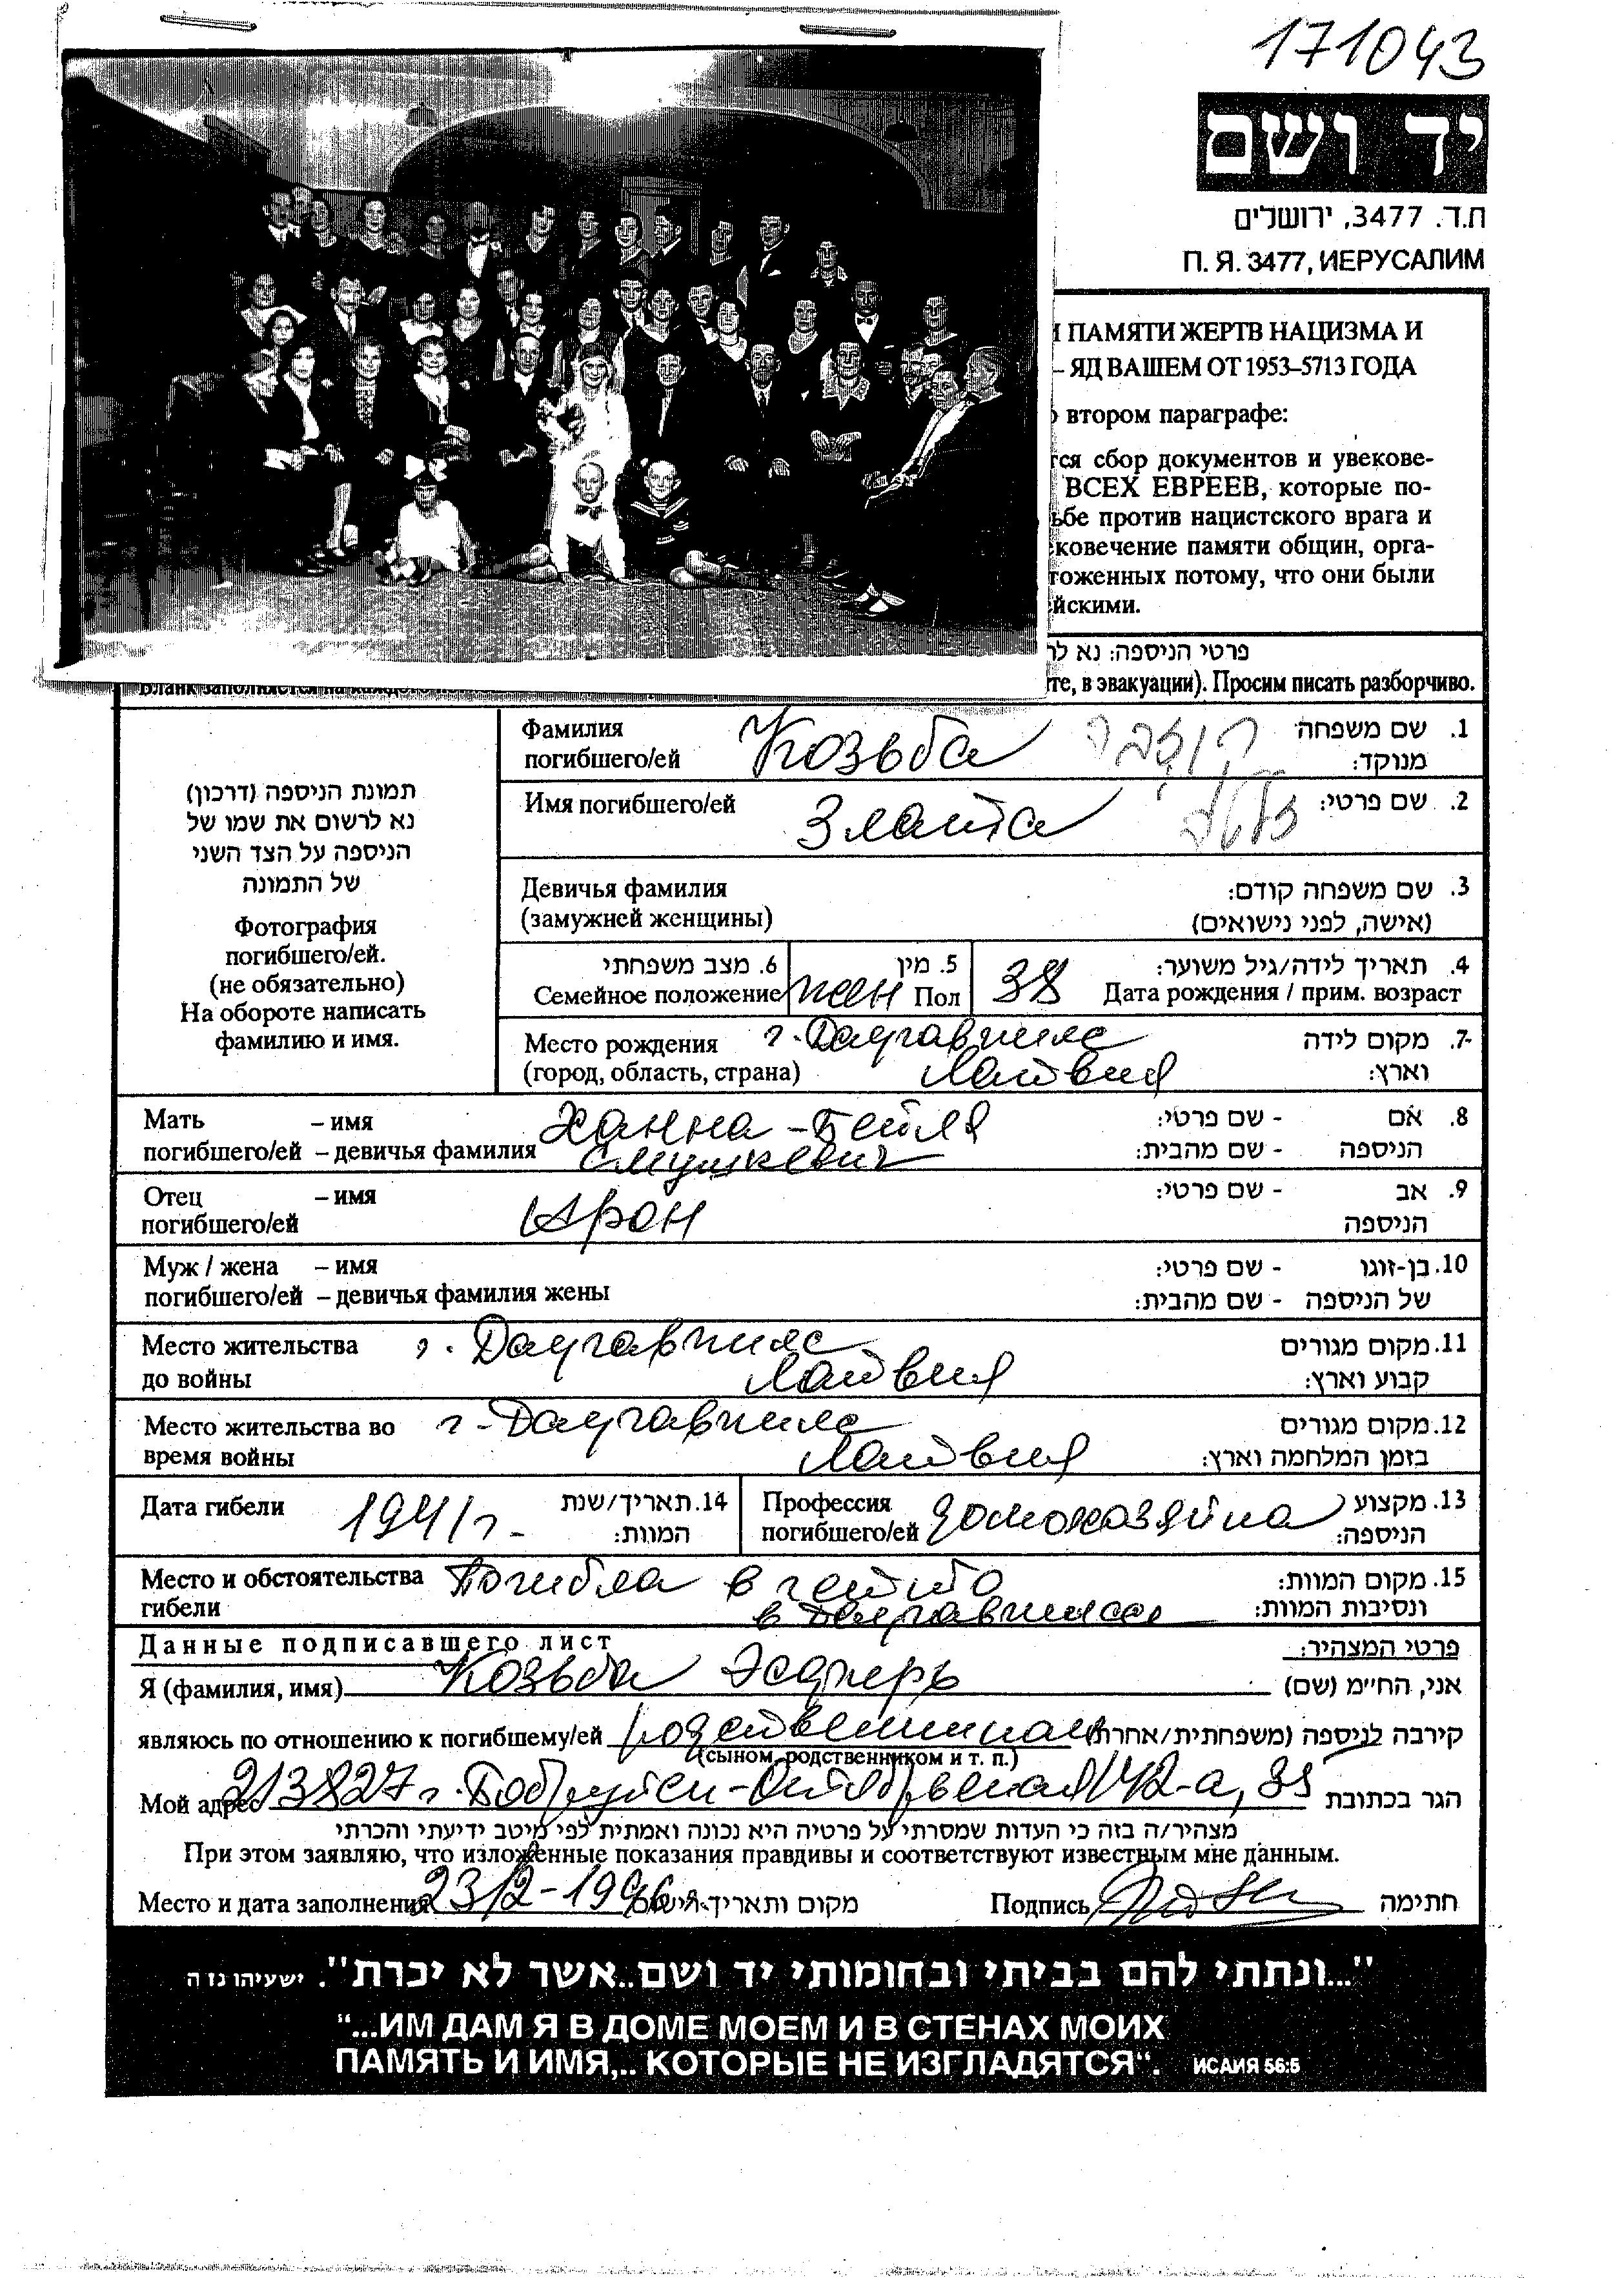 171043
יד ושם
ת.ד. 3477, ירושלים
П. Я. 3477, ИЕРУСАЛИМ
ПАМЯТИ ЖЕРТВ НАЦИЗМА И
– ЯД ВАШЕМ ОТ 1953–5713 ГОДА
втором параграфе:
тся сбор документов и увекове-
ВСЕХ ЕВРЕЕВ, которые по-
ьбе против нацистского врага и
ковечение памяти общин, орга-
тоженных потому, что они были
йскими.
פרטי הניספה: נא לר
Бланк заполняется на каждого
те, в эвакуации). Просим писать разборчиво.
תמונת הניספה (דרכון)
נא לרשום את שמו של
הניספה על הצד השני
של התמונה
Фотография
погибшего/ей.
(не обязательно)
На обороте написать
фамилию и имя.
Фамилия погибшего/ей Козьба קוזבה 1. שם משפחה מנוקד:
Имя погибшего/ей Злата זלטה 2. שם פרטי:
Девичья фамилия 3. שם משפחה קודם:
(замужней женщины) (אישה, לפני נישואים)
6. מצב משפחתי 5. מין 4. תאריך לידה/גיל משוער:
Семейное положение жен Пол 38 Дата рождения / прим. возраст
Место рождения г. Даугавпилс 7. מקום לידה
(город, область, страна) Латвия וארץ:
Мать – имя Ханна-Бейля 8. אם - שם פרטי:
погибшего/ей – девичья фамилия Смушкевич הניספה - שם מהבית:
Отец – имя Арон 9. אב - שם פרטי:
погибшего/ей הניספה
Муж / жена – имя 10. בן-זוגו - שם פרטי:
погибшего/ей – девичья фамилия жены של הניספה - שם מהבית:
Место жительства г. Даугавпилс 11. מקום מגורים
до войны Латвия קבוע וארץ:
Место жительства во г. Даугавпилс 12. מקום מגורים
время войны Латвия בזמן המלחמה וארץ:
Дата гибели 1941 г. 14. תאריך/שנת המוות:
Профессия погибшего/ей домохозяйка 13. מקצוע הניספה:
Место и обстоятельства Погибла в гетто 15. מקום המוות:
гибели в Даугавпилсе ונסיבות המוות:
Данные подписавшего лист פרטי המצהיר:
Я (фамилия, имя) Козьба Эсфирь אני, החיימ (שם)
являюсь по отношению к погибшему/ей родственницей קירבה לניספה (משפחתית/אחרת)
(сыном, родственником и т. п.)
Мой адрес 213827 г. Бобруйск- 142-а, הגר בכתובת
מצהיר/ה בזה כי העדות שמסרתי על פרטיה היא נכונה ואמתית לפי מיטב ידיעתי והכרתי
При этом заявляю, что изложенные показания правдивы и соответствуют известным мне данным.
Место и дата заполнения 23/2-1996 г. מקום ותאריך Подпись חתימה
"...ונתתי להם בביתי ובחומותי יד ושם..אשר לא יכרת". ישעיהו נז ה
“...ИМ ДАМ Я В ДОМЕ МОЕМ И В СТЕНАХ МОИХ
ПАМЯТЬ И ИМЯ,.. КОТОРЫЕ НЕ ИЗГЛАДЯТСЯ“. ИСАИЯ 56:5